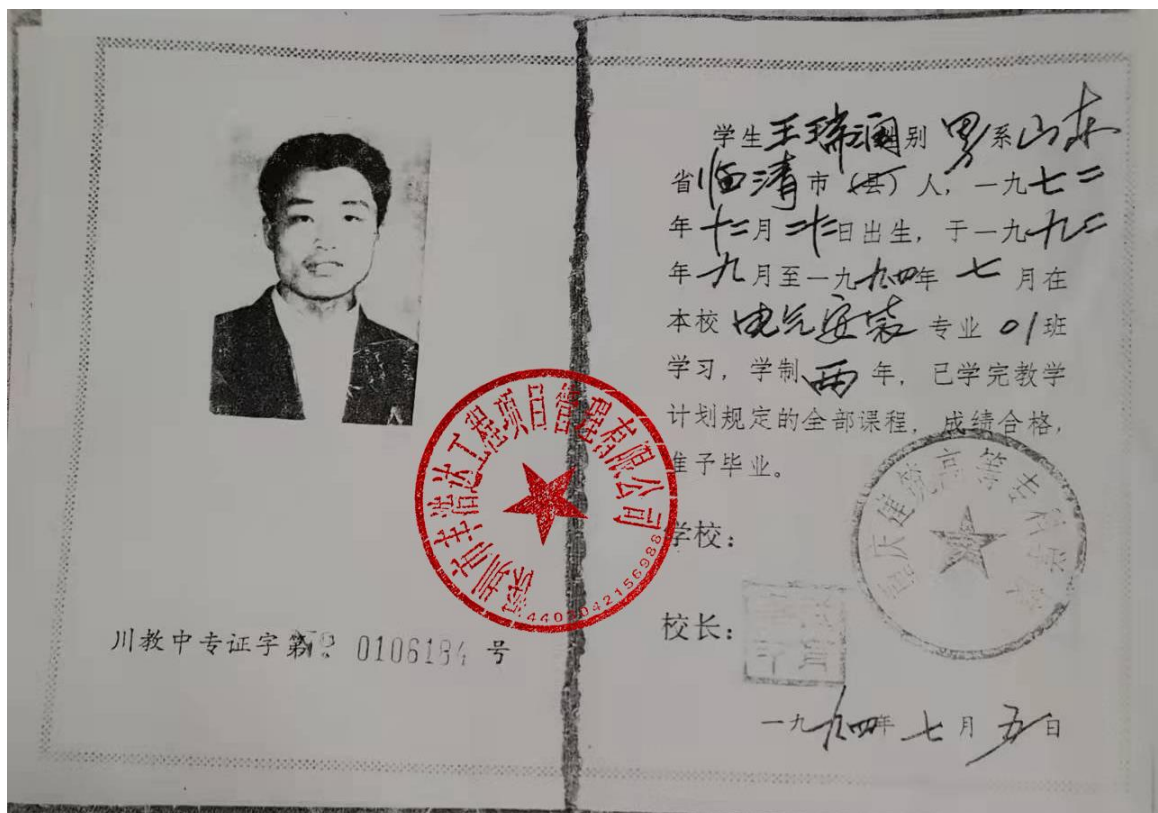 川教中专证字第 0106184 号
深圳市丰浩达工程项目管理有限公司
学生王瑞澜别 男 系山东
省临清市(县)人,一九七二
年十二月二十二日出生,于一九九二
年九月至一九九四年 七 月在
本校 电气安装 专业 01班
学习,学制 两 年,已学完教学
计划规定的全部课程,成绩合格,
准予毕业。
学校:
重庆建筑高等专科学校
校长:
一九九四年 七 月 五 日